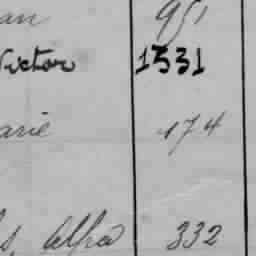 an 951
Victor 1331
arie 174
s, Alfred 332